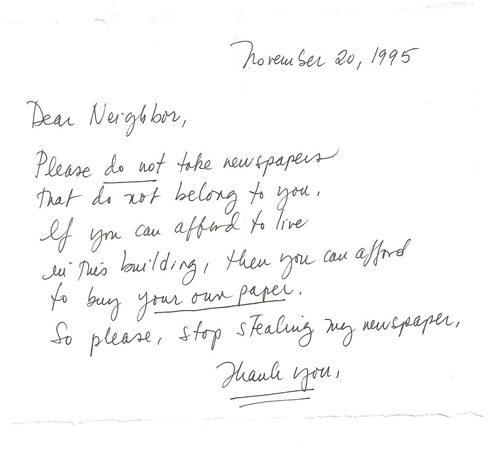 November 20, 1995
Dear Neighbor,
Please do not take newspapers
that do not belong to you.
If you can afford to live
in this building, then you can afford
to buy your own paper.
So please, stop stealing my newspaper.
Thank you.